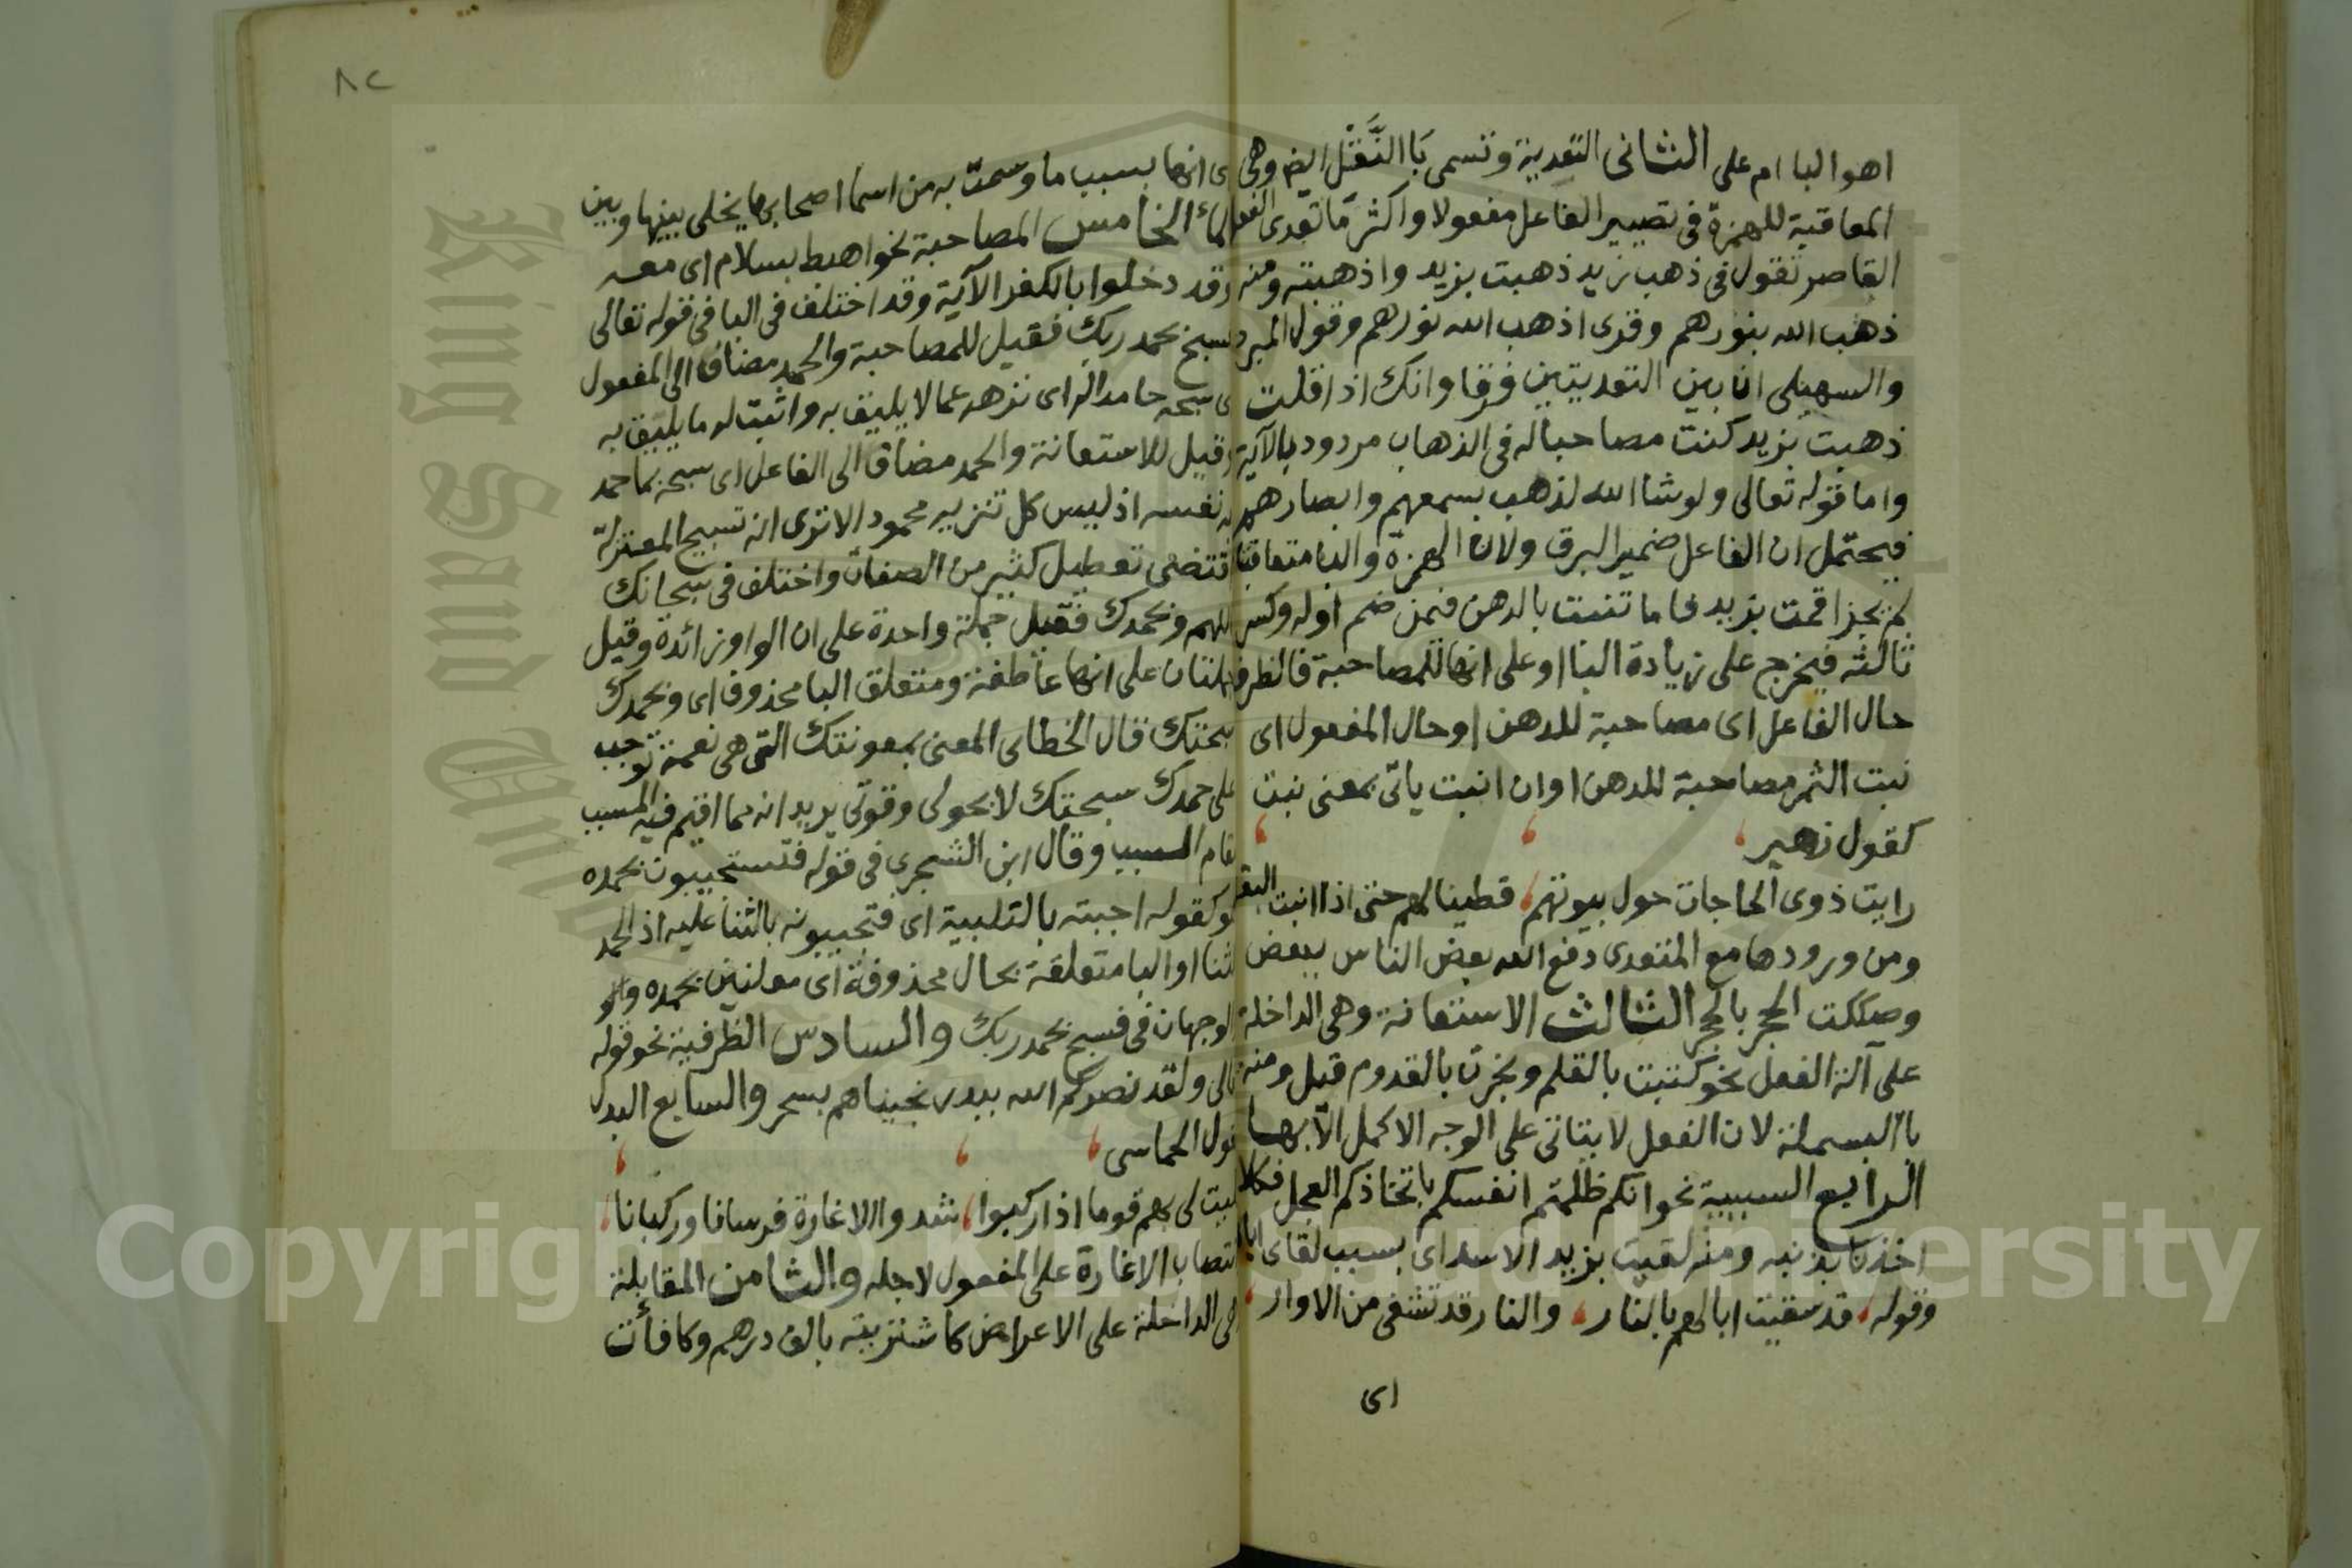 اهو البا ام على الثانى التعدية وتسمى بَا النَّقْل ايض وهى
المعاقبة للهمزة فى تصيير الفاعل مفعولا واكثر ما تعدى الفعل
القاصر تقول فى ذهب زيد ذهبت بزيد واذهبته ومنه
ذهب الله بنورهم وقرى اذهب الله نورهم وقول المبرد
والسهيلى ان بين التعديتين فرقا وانك اذا قلت
ذهبت بزيد كنت مصاحبا له فى الذهاب مردود بالآية
واما قوله تعالى ولو شا الله لذهب بسمعهم وابصارهم
فيحتمل ان الفاعل ضمير البرق ولان الهمزة والبا متعاقبتا
لم يجز اقمت بزيد فاما تنبت بالدهن فمن ضم اوله وكسر
ثالثه فيخرج على زيادة البا او على انها للمصاحبة فالظرف
حال الفاعل اى مصاحبة للدهن او حال المفعول اى
نبت الثمر مصاحبة للدهن او ان انبت ياتى بمعنى نبت
كقول زهير
رايت ذوى الحاجات حول بيوتهم قطينا لهم حتى اذا انبت البقل
ومن ورودها مع المتعدى دفع الله بعض الناس ببعض
وصككت الحجر بالحجر الثالث الاستعانة وهى الداخلة
على آلة الفعل نحو كتبت بالقلم ونجرت بالقدوم قيل ومنه
با البسملة لان الفعل لا يتاتى على الوجه الاكمل الا بها
الرابع السببية نحو انكم ظلمتم انفسكم باتخاذكم العجل فكلا
اخذنا بذنبه ومنه لقيت بزيد الاسد اى بسبب لقاى اياه
وقوله قد سقيت ابالهم بالنار والنار قد تشفى من الاوار
اى
٨٢
ى انها بسبب ما وسمت به من اسما اصحابها يخلى بينها وبين
الماء الخامس المصاحبة نحو اهبط بسلام اى معه
وقد دخلوا بالكفر الآية وقد اختلف فى البا فى قوله تعالى
فسبح بحمد ربك فقيل للمصاحبة والحمد مضاف الى المفعول
ى سبحه حامدا له اى نزهه عما لا يليق به واثبت له ما يليق به
وقيل للاستعانة والحمد مضاف الى الفاعل اى سبحه بما حمد
به نفسه اذ ليس كل تنزيه محمود الا ترى ان تسبيح المعتزلة
تقتضى تعطيل كثير من الصفات واختلف فى سبحانك
للهم وبحمدك فقيل جملة واحدة على ان الواو زائدة وقيل
جملتان على انها عاطفة ومتعلق البا محذوف اى وبحمدك
سبحتك قال الخطابى المعنى بمعونتك التى هى نعمة توجب
على حمدك سبحتك لا بحولى وقوتى يريد انه مما اقيم فيه المسبب
مقام السبب وقال ابن الشجرى فى قوله فتستجيبون بحمده
هو كقوله اجبته بالتلبية اى فتجيبونه بالثنا عليه اذ الحمد
الثنا او البا متعلقة بحال محذوفة اى معلنين بحمده والو
الوجهان فى فسبح بحمد ربك والسادس الظرفية نحو قوله
تعالى ولقد نصركم الله ببدر نجيناهم بسحر والسابع البدل
قول الحماسى
فليت لى بهم قوما اذا ركبوا شدوا الاغارة فرسانا وركبانا
انتصاب الاغارة على المفعول لاجله والثامن المقابلة
هى الداخلة على الاعراض كاشتريته بالف درهم وكافأت